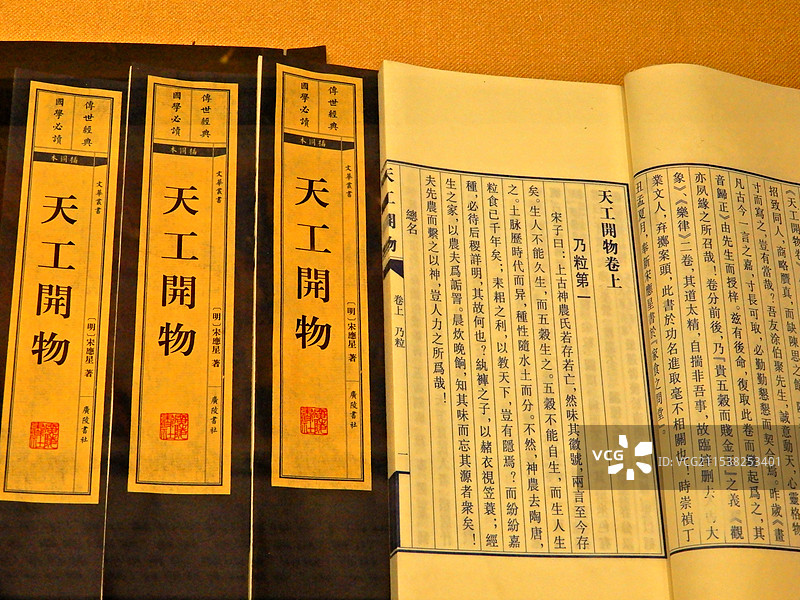 傳世經典
國學必讀
插圖本
文華叢書
天工開物
〔明〕宋應星 著
廣陵書社
傳世經典
國學必讀
插圖本
文華叢書
天工開物
〔明〕宋應星 著
廣陵書社
傳世經典
國學必讀
插圖本
文華叢書
天工開物
〔明〕宋應星 著
廣陵書社
《天工開物卷
招致同人，商略贋真，而缺陳思之館
寸而寫之，豈有當哉？吾友涂伯聚先生，誠意動天，心靈格物
凡古今一言之嘉，寸長可取，必勤勤懇懇而契 焉。昨歲《畫
音歸正》由先生而授梓，茲有後命，復取此卷而 起爲之，其
亦夙緣之所召哉！卷分前後，乃『貴五穀而賤金 之義《觀
象》、《樂律》二卷，其道太精，自揣非吾事，故臨 刪去 大
業文人，弃擲案頭，此書於功名進取毫不相關也 時崇禎丁
丑孟夏月，奉新宋應星書於『家食之問堂』
天工開物卷上
乃粒第一
宋子曰：上古神農氏若存若亡，然味其徽號，兩言至今存
矣。生人不能久生，而五穀生之。五穀不能自生，而生人生
之。土脉歷時代而异，種性隨水土而分。不然，神農去陶唐，
粒食已千年矣；耒耜之利，以教天下，豈有隱焉？而紛紛嘉
種必待后稷詳明，其故何也？紈褲之子，以赭衣視笠蓑；經
生之家，以農夫爲詬詈。晨炊晚餉，知其味而忘其源者衆矣！
夫先農而繫之以神，豈人力之所爲哉！
總名
天工開物
卷上 乃粒
一
VCG
ID: VCG211538253401